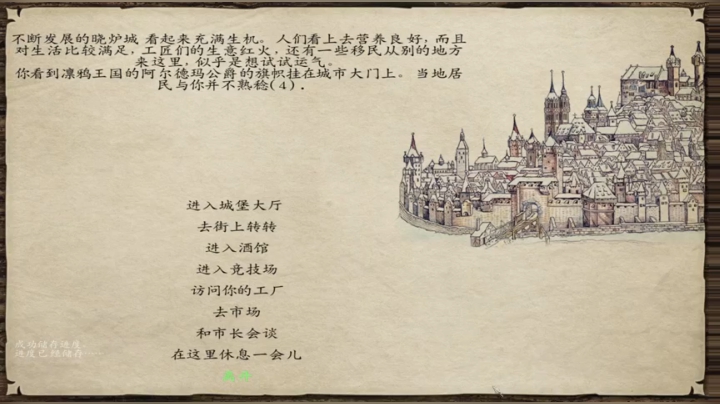 不断发展的晓炉城 看起来充满生机。人们看上去营养良好,而且
对生活比较满足,工匠们的生意红火,还有一些移民从别的地方
来这里,似乎是想试试运气。
你看到凛鸦王国的阿尔德玛公爵的旗帜挂在城市大门上。当地居
民与你并不熟稔(4).
进入城堡大厅
去街上转转
进入酒馆
进入竞技场
访问你的工厂
去市场
和市长会谈
在这里休息一会儿
成功储存进度,
进度已经储存…